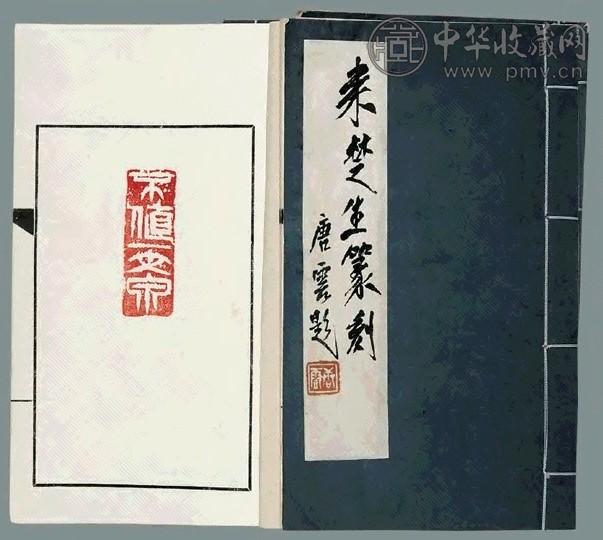 中华收藏网
www.pmv.cn
来楚生篆刻
唐雲题